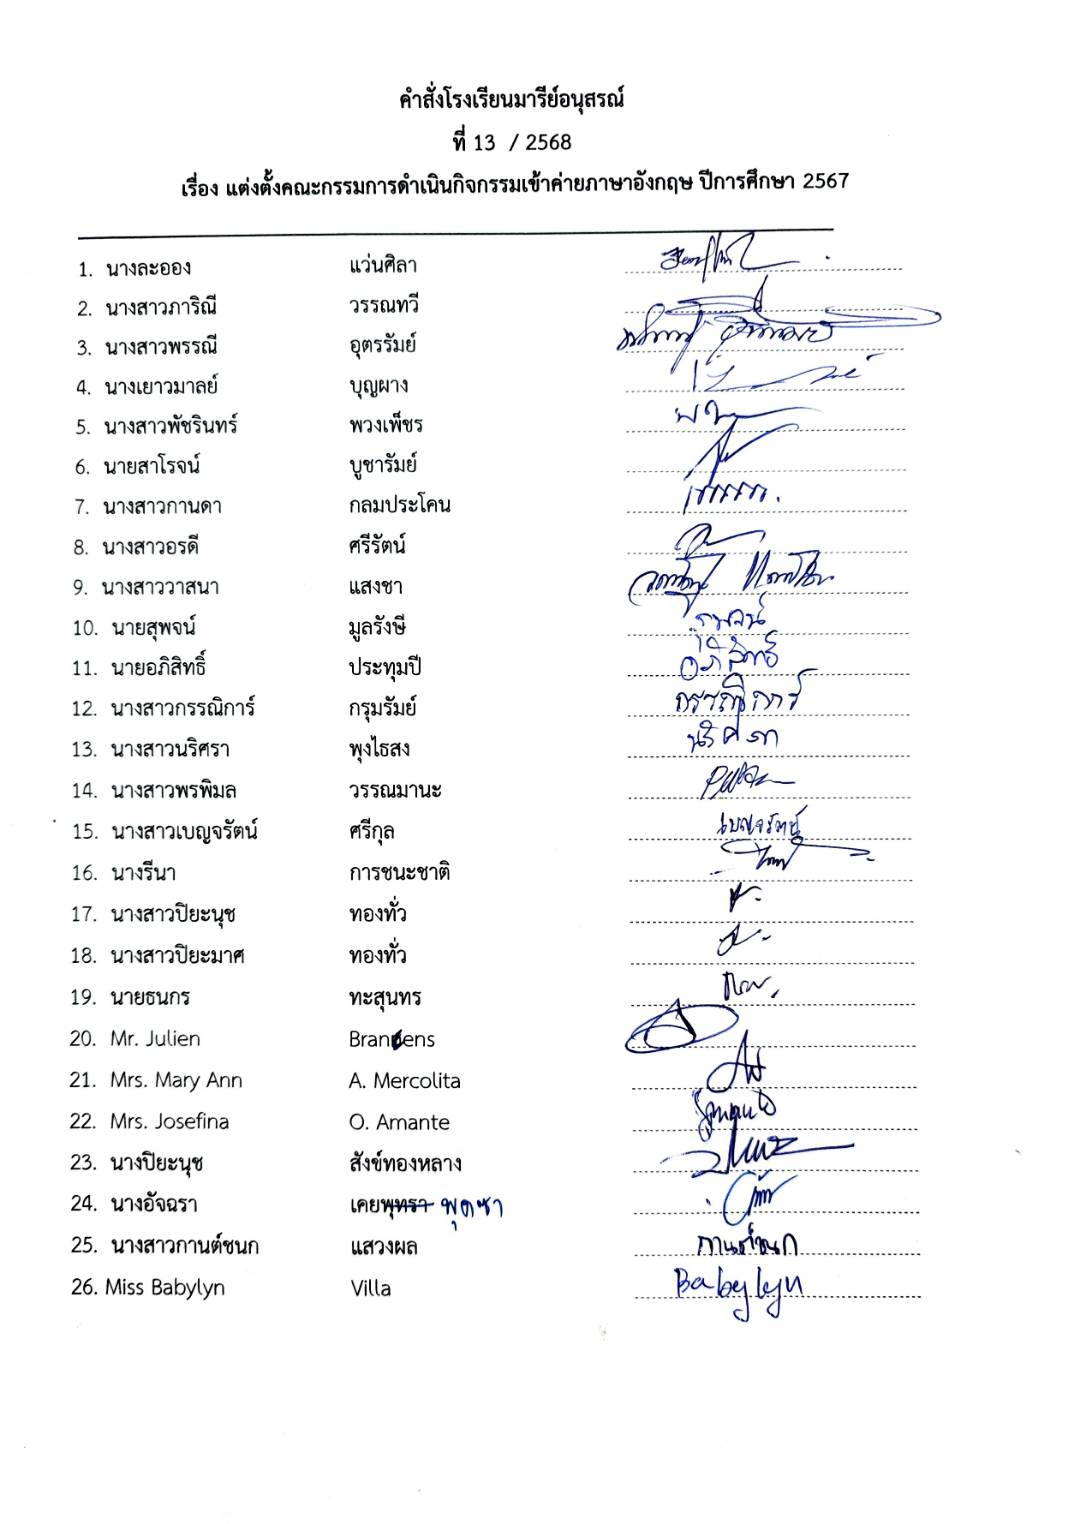 คำสั่งโรงเรียนมารีย์อนุสรณ์
ที่ 13 / 2568
เรื่อง แต่งตั้งคณะกรรมการดำเนินกิจกรรมเข้าค่ายภาษาอังกฤษ ปีการศึกษา 2567
1. นางละออง แว่นศิลา
2. นางสาวภาริณี วรรณทวี
3. นางสาวพรรณี อุตรรัมย์
4. นางเยาวมาลย์ บุญผาง
5. นางสาวพัชรินทร์ พวงเพ็ชร
6. นายสาโรจน์ บูชารัมย์
7. นางสาวกานดา กลมประโคน
8. นางสาวอรดี ศรีรัตน์
9. นางสาววาสนา แสงชา
10. นายสุพจน์ มูลรังษี
11. นายอภิสิทธิ์ ประทุมปี อภิสิทธิ์
12. นางสาวกรรณิการ์ กรุมรัมย์ กรรณิการ์
13. นางสาวนริศรา พุงไธสง
14. นางสาวพรพิมล วรรณมานะ
15. นางสาวเบญจรัตน์ ศรีกุล เบญจรัตน์
16. นางรีนา การชนะชาติ
17. นางสาวปิยะนุช ทองทั่ว
18. นางสาวปิยะมาศ ทองทั่ว
19. นายธนกร ทะสุนทร
20. Mr. Julien Brandens
21. Mrs. Mary Ann A. Mercolita
22. Mrs. Josefina O. Amante
23. นางปิยะนุช สังข์ทองหลาง
24. นางอัจฉรา เคยพุทรา พุดซา
25. นางสาวกานต์ชนก แสวงผล กานต์ชนก
26. Miss Babylyn Villa Babylyn